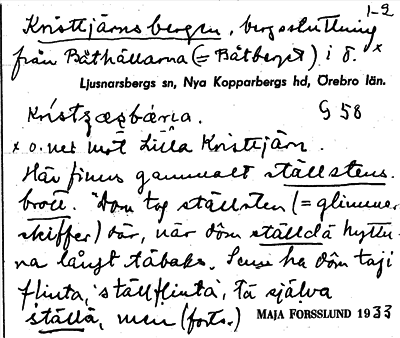 1-2
Kristtjärnsbergen, bergssluttning
från Båthällarna (= Båtberget) i ö. x
Ljusnarsbergs sn, Nya Kopparbergs hd, Örebro län.
G 58
x o. ner mot Lilla Kristtjärn.
Här finns gammalt ställstens-
brott. "Dom tog ställsten (= glimmer-
skiffer) där, när dôm ställdå hyttu-
na långt tebaks. Sen ha dôm taji
flinta, 'ställflinta', tå själva
ställå, men (forts.)
MAJA FORSSLUND 1933